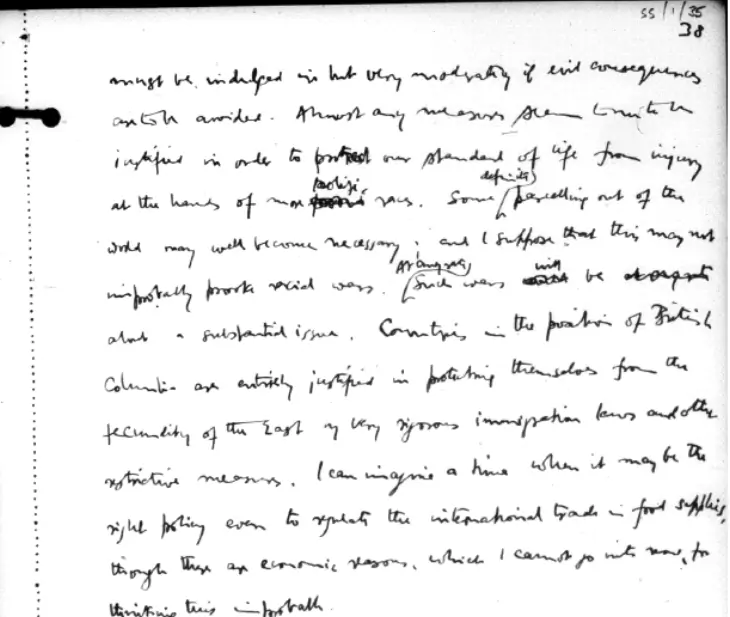 SS/1/35
38
must be indulged in but very moderately if evil consequences
are to be avoided. Almost any measures seem to me to be
justified in order to protect our standard of life from injury
at the hands of more prolific races. Some definite parcelling out of the
world may well become necessary; and I suppose that this may not
improbably provoke racial wars. At any rate such wars will be
about a substantial issue. Countries in the position of British
Columbia are entirely justified in protecting themselves from the
fecundity of the East by very rigorous immigration laws and other
restrictive measures. I can imagine a time when it may be the
right policy even to regulate the international trade in food supplies,
though there are economic reasons, which I cannot go into now, for
thinking this improbable.